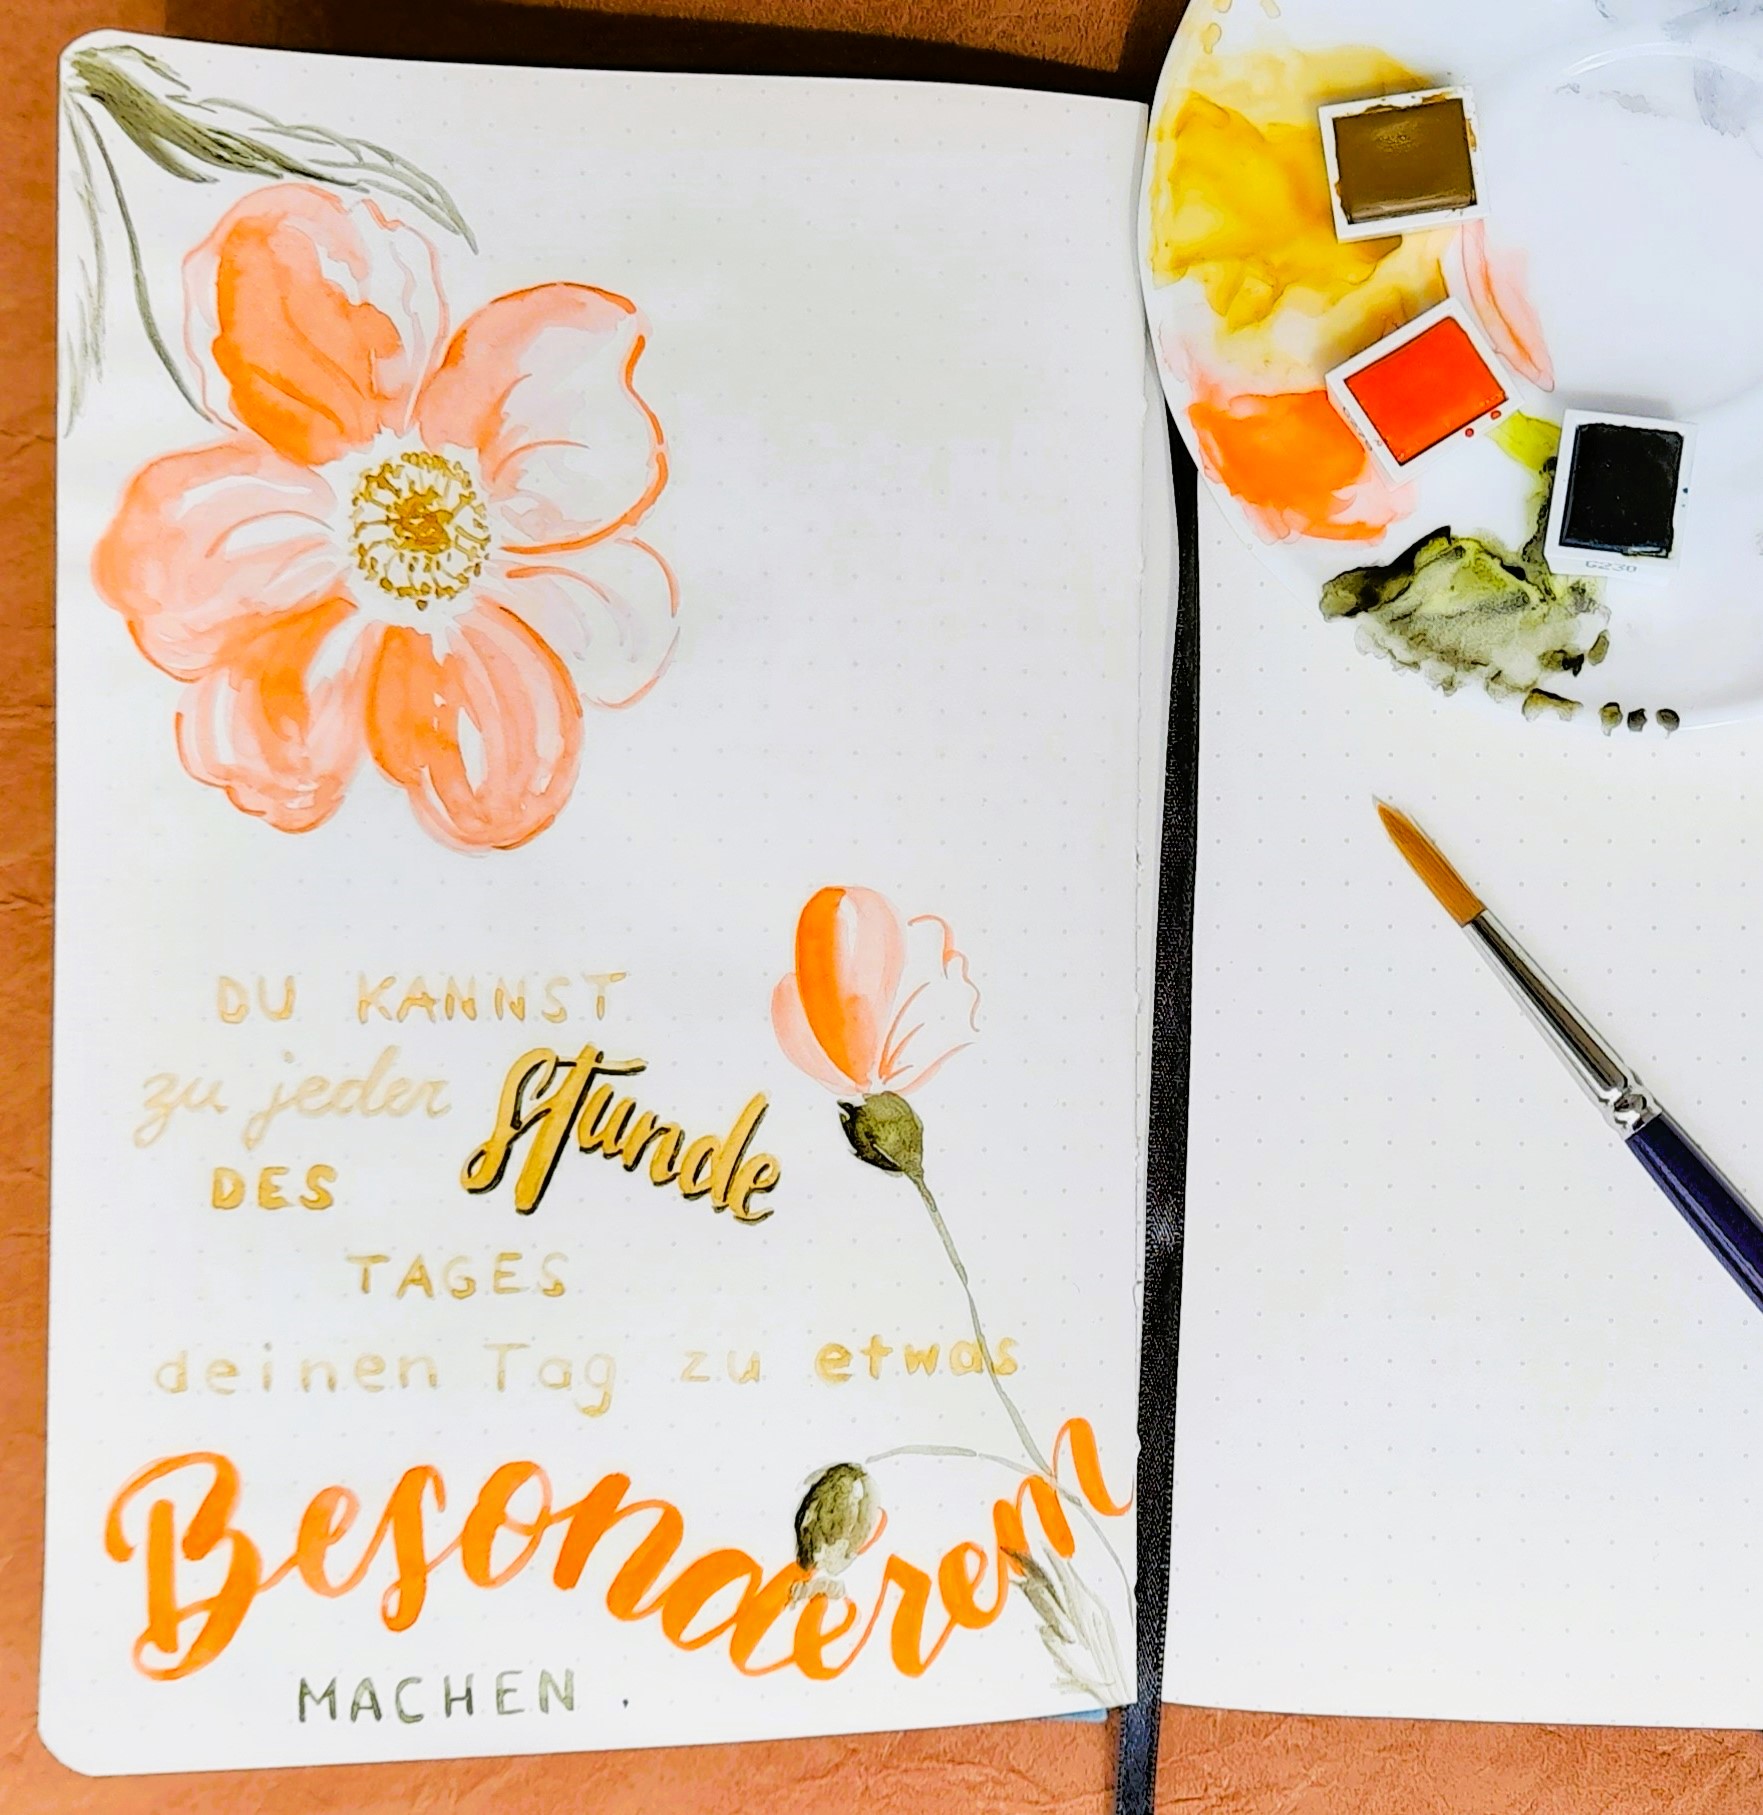 DU KANNST
zu jeder Stunde
DES
TAGES
deinen Tag zu etwas
Besonderem
MACHEN.
G230